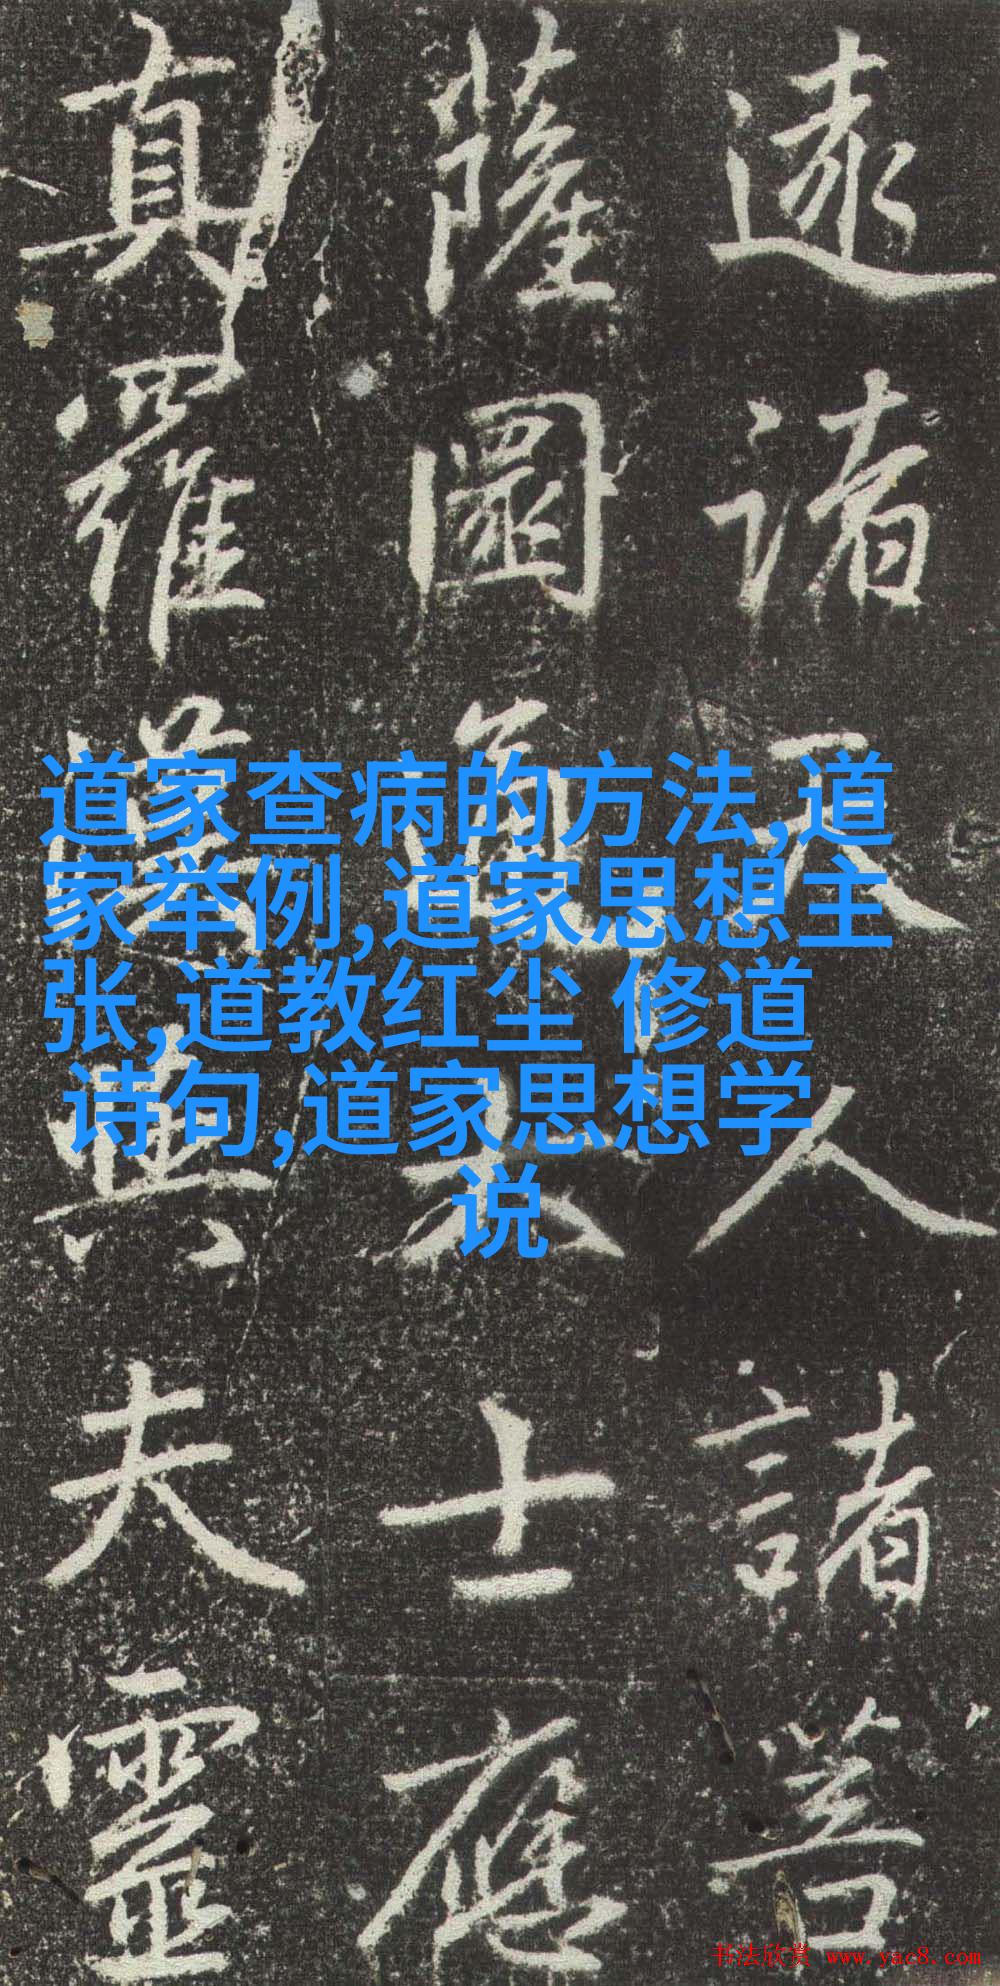 逮諸天人諸菩
薩圓覺大士應
真羅漢與夫靈
道家查病的方法,道
家举例,道家思想主
张,道教红尘 修道
诗句,道家思想学
说
书法欣赏 www.yac8.com